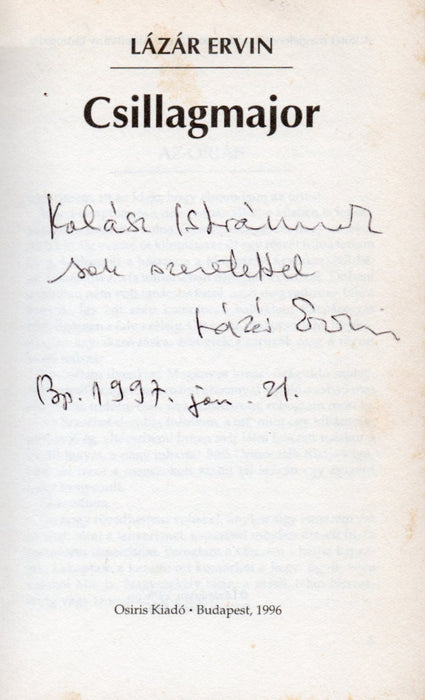 LÁZÁR ERVIN
Csillagmajor
Kalász Istvánnak
sok szeretettel
Lázár Ervin
Bp. 1997. jan. 21.
Osiris Kiadó • Budapest, 1996